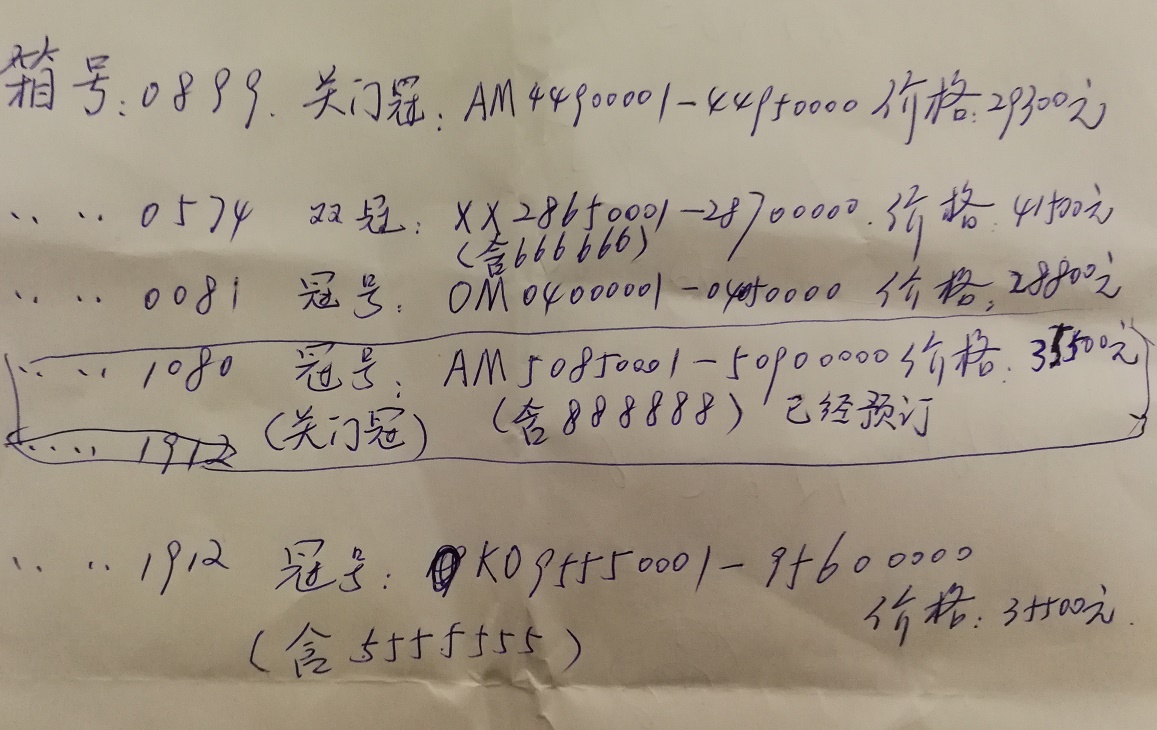 箱号:0899. 关门冠:AM44900001-44950000 价格:29300元
‥ ‥ 0574 双冠:XX28650001-28700000.价格:41500元
(含666666)
‥ ‥ 0081 冠号:OM04000001-04050000 价格:28800元
‥ ‥ 1080 冠号:AM50850001-50900000 价格:35500元
(关门冠) (含888888) 已经预订
‥ ‥ 1912
‥ ‥ 1912 冠号:KO95550001-95600000
价格:35500元.
(含5555555)